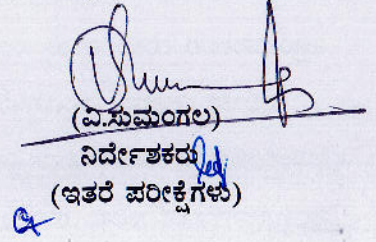 (ವಿ.ಸುಮಂಗಲ)
ನಿರ್ದೇಶಕರು
(ಇತರೆ ಪರೀಕ್ಷೆಗಳು)